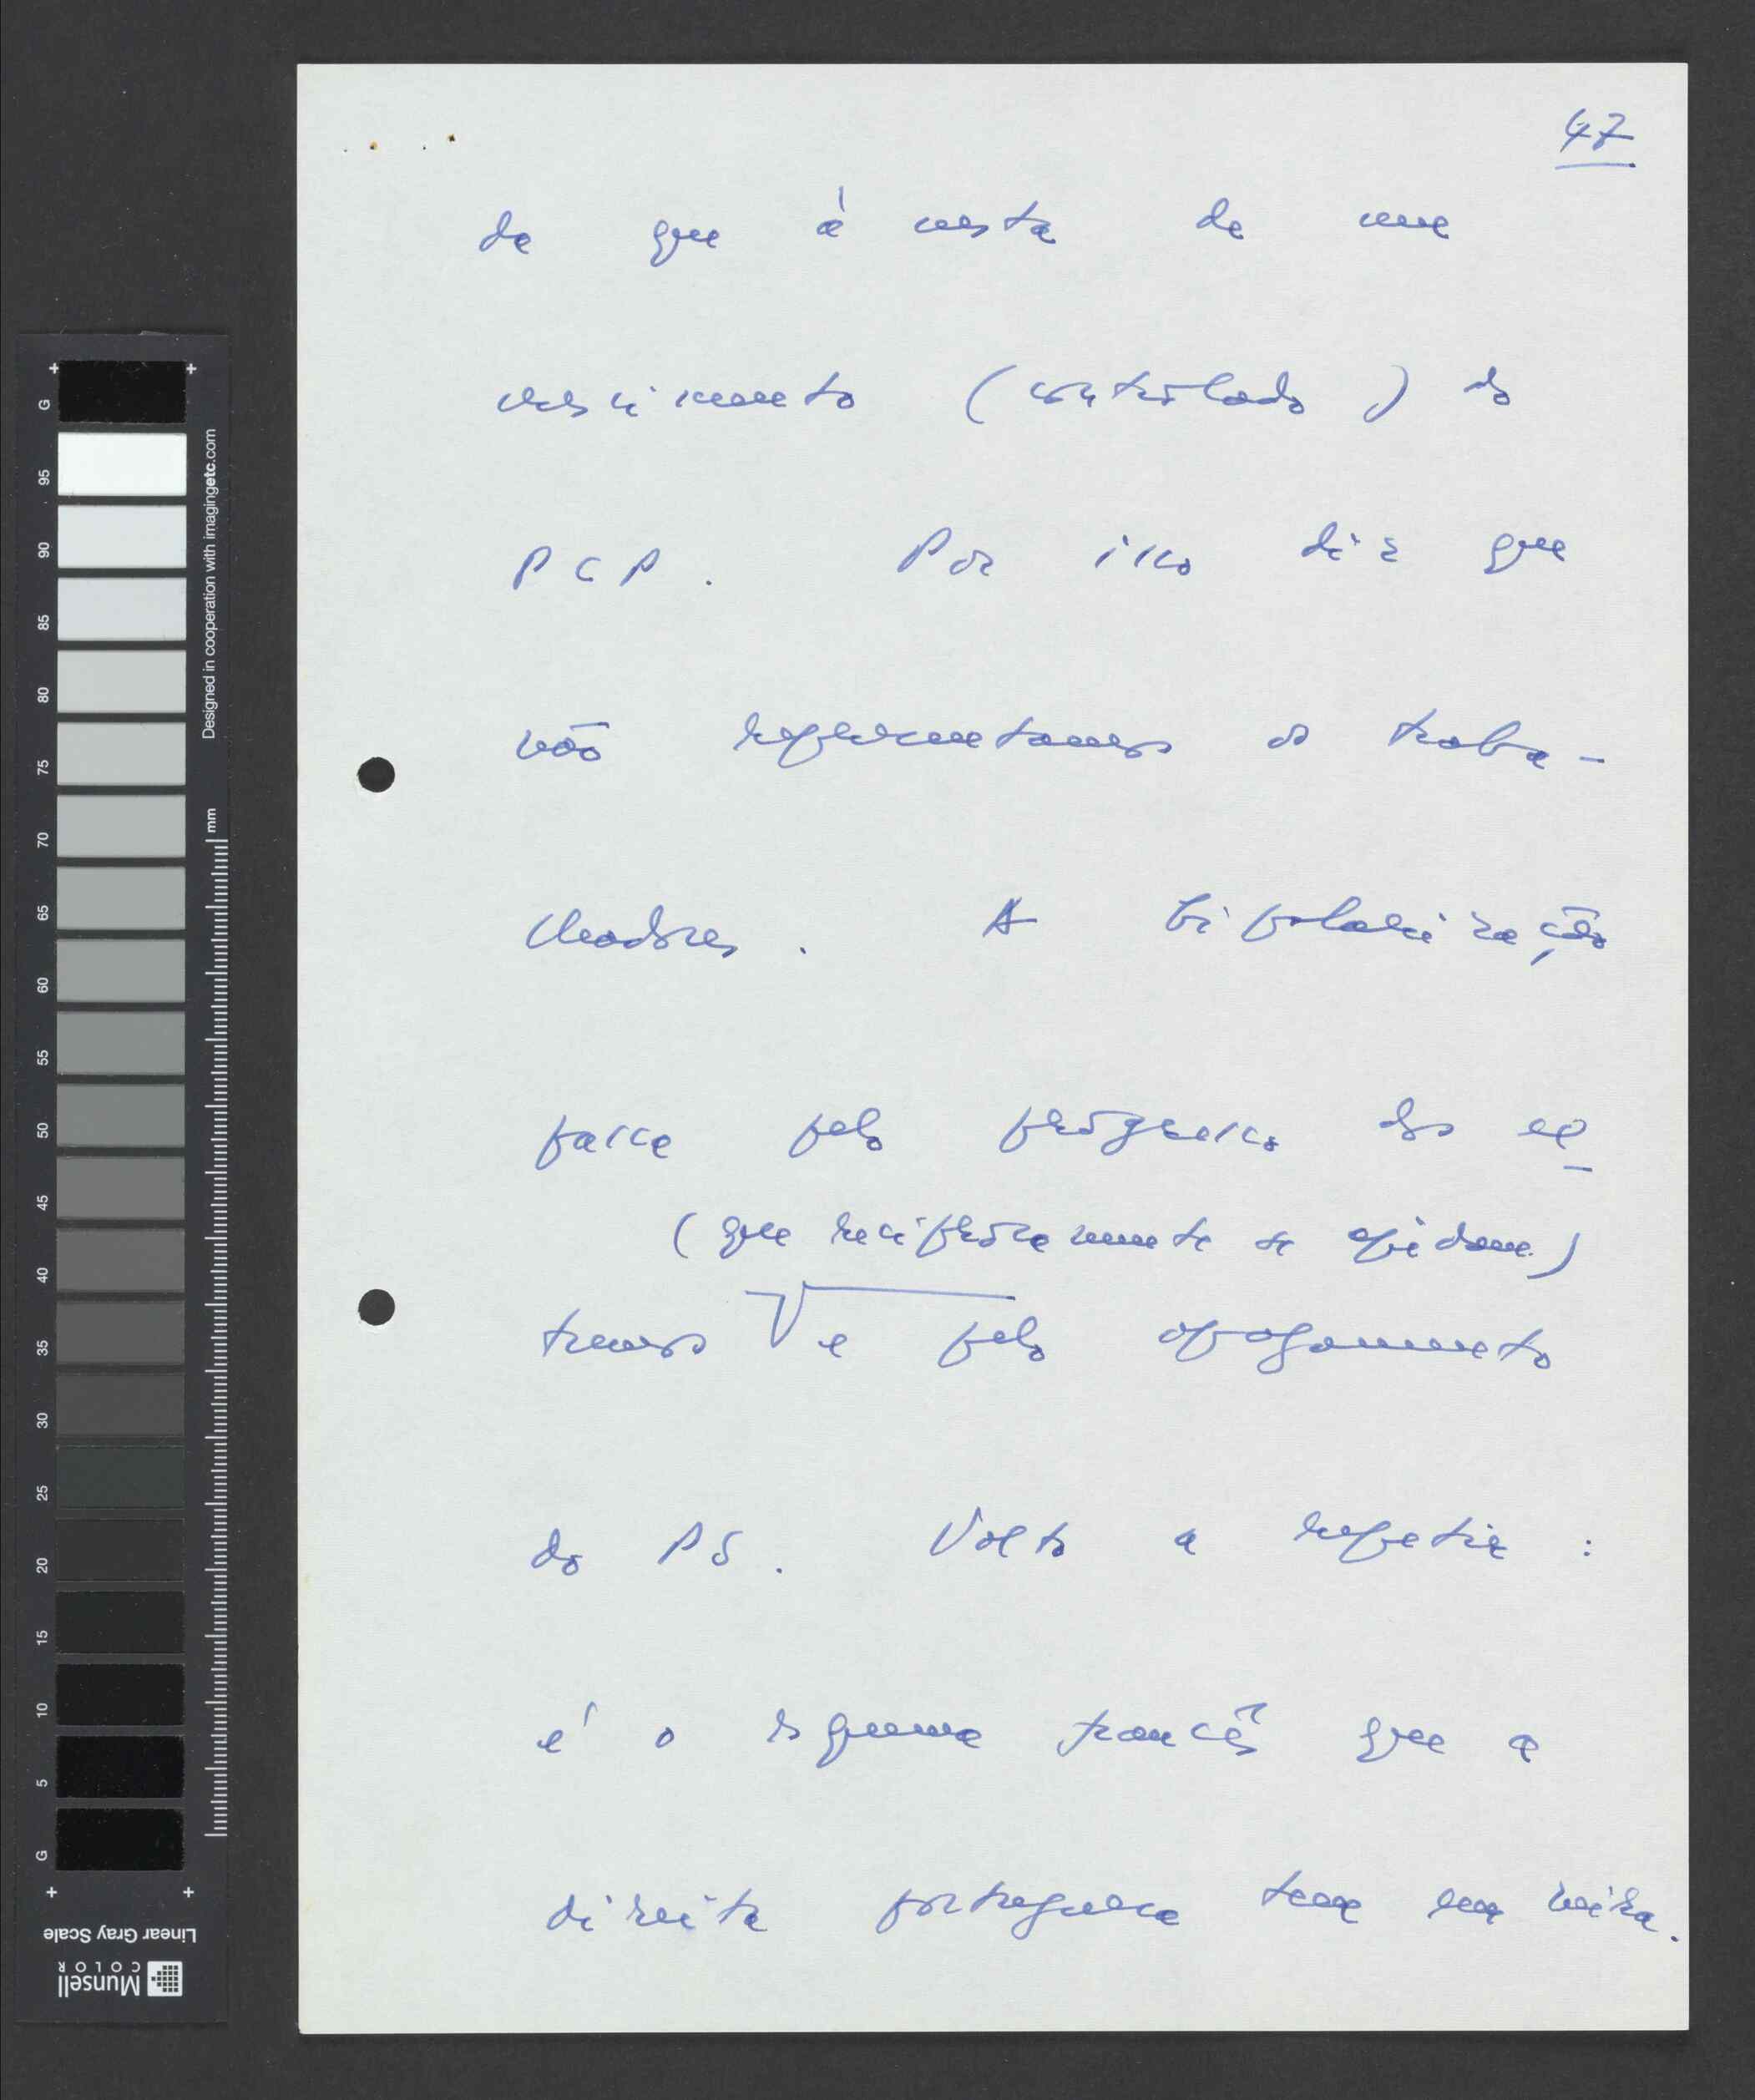 47
da que à custa de um
crescimento (controlado) do
PCP. Por isso diz que
não representamos os traba-
lhadores. A bipolarização
passa pelo progresso dos ex-
(que reciprocamente se ajudam)
tremos e pelo apagamento
do PS. Volto a repetir:
é o esquema francês que a
direita portuguesa tem em mira.
G
95
90
85
80
75
70
65
60
55
50
45
40
35
30
25
20
15
10
5
G
mm
Designed in cooperation with imagingetc.com
Linear Gray Scale
Munsell
COLOR